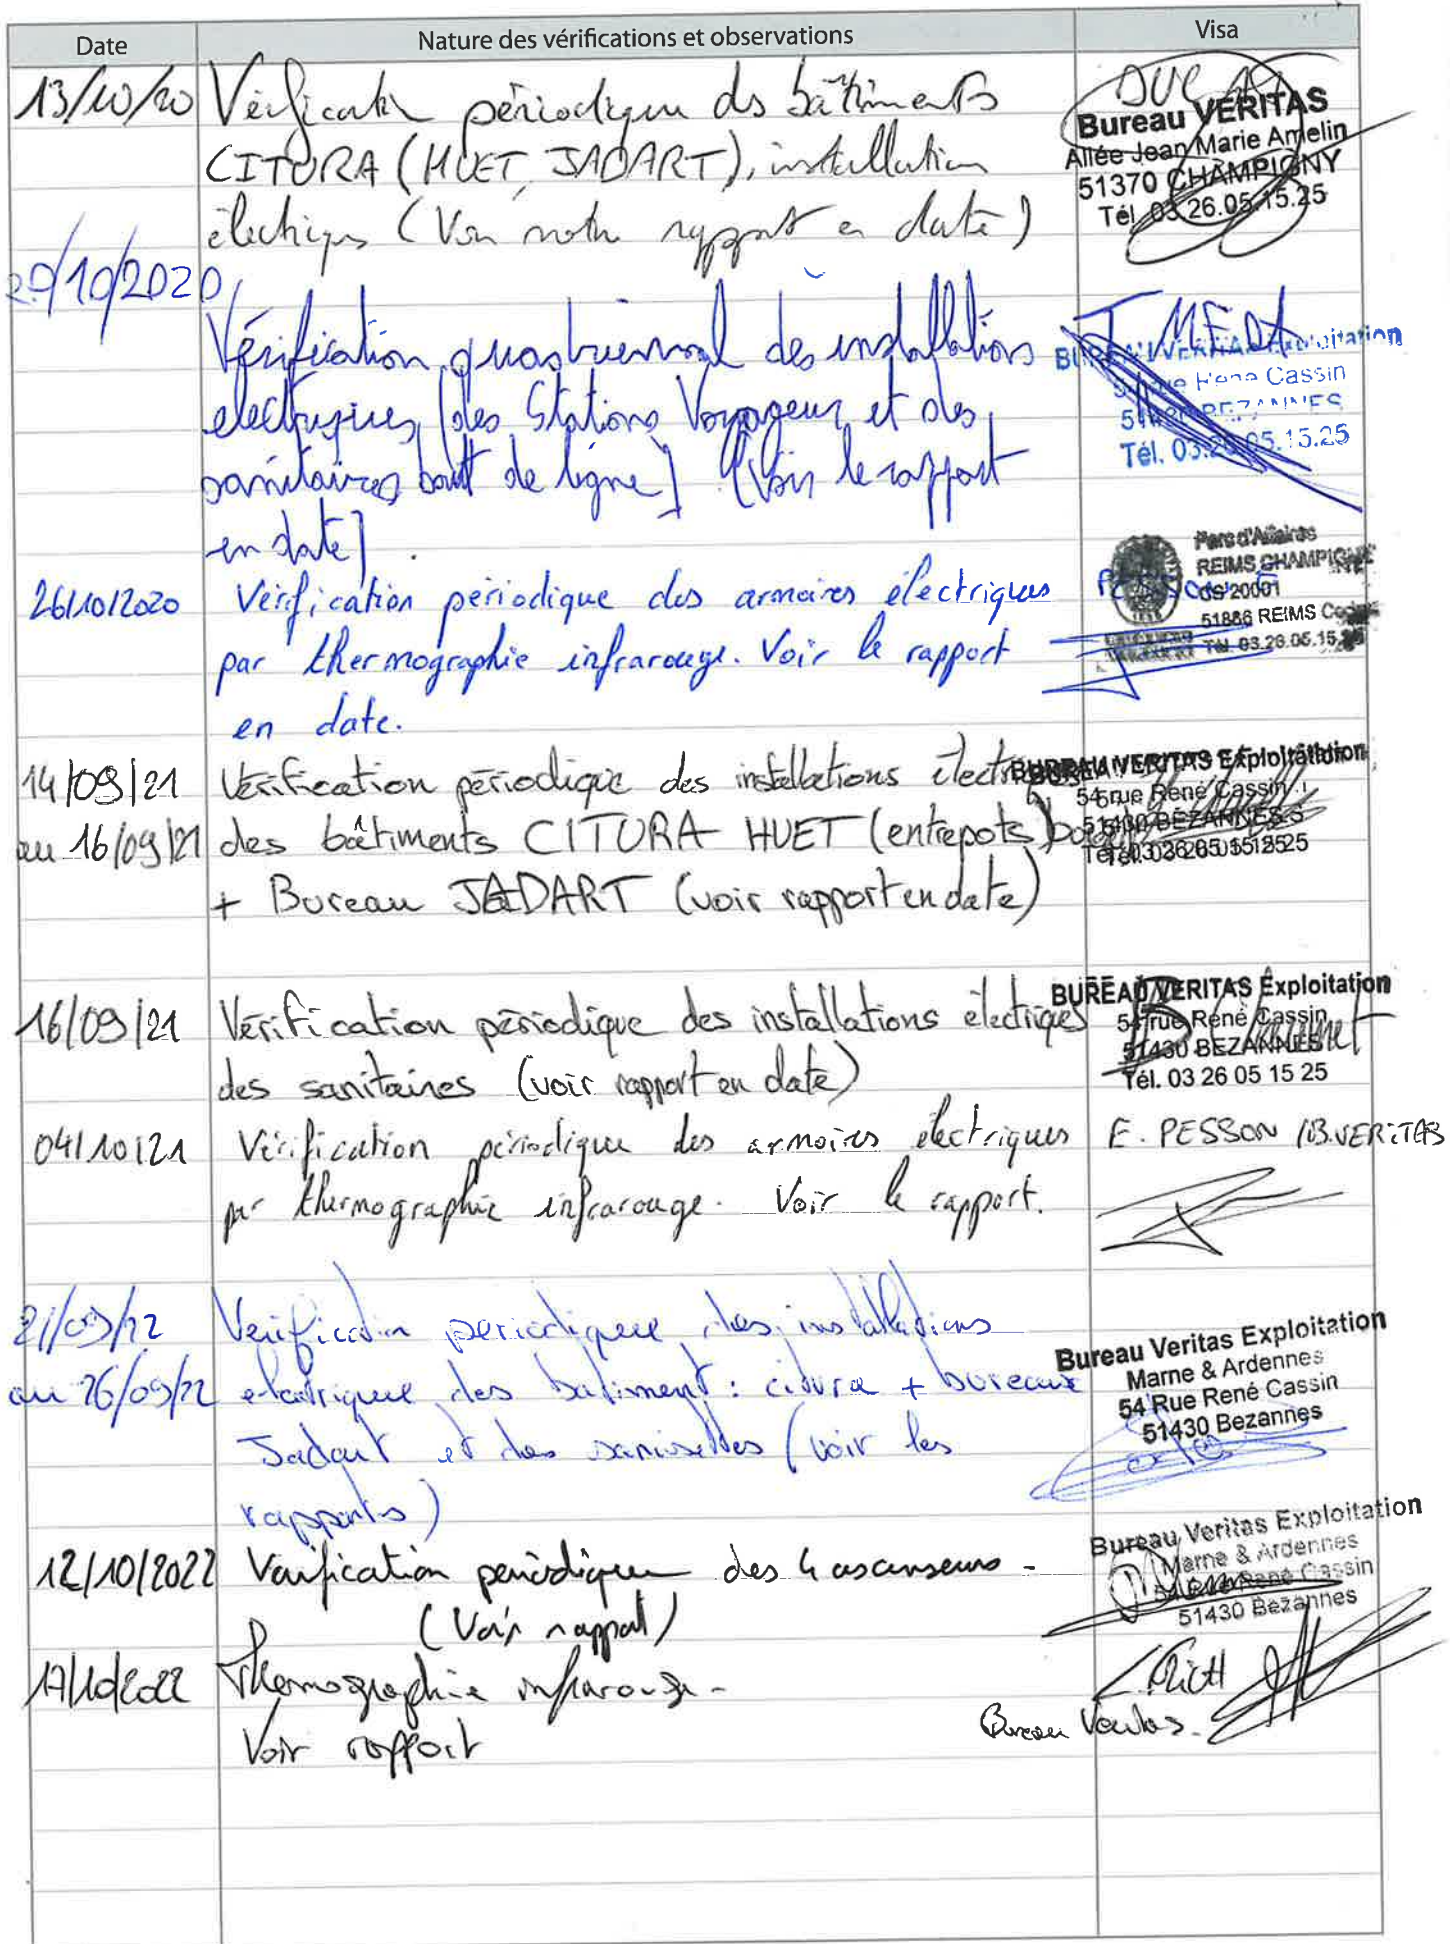 Date Nature des vérifications et observations Visa
13/10/20 Vérificatn périodique ds bâtiments
CITURA (HUET, JADART), installation
électriqus (Voir notre rapport en date)
DUC
Bureau VERITAS
Allée Jean Marie Amelin
51370 CHAMPIGNY
Tél. 03 26.05.15.25
29/10/2020
Vérification quastriennal des installations
electriques (des Stations Voyageur et des
sanitaires bout de ligne) (Voir le rapport
en date).
BUREAU VERITAS Exploitation
54 rue René Cassin
51430 BEZANNES
Tél. 03.26.05.15.25
26/10/2020 Vérification périodique des armoires électriques
par thermographie infrarouge. Voir le rapport
en date.
Parc d'Affaires
REIMS CHAMPIGNY
CS 20001
51886 REIMS Cedex
Tél. 03.26.05.15.25
14/09/21 Vérification périodique des installations électriques
au 16/09/21 des bâtiments CITURA HUET (entrepots
+ Bureau JADART (voir rapport en date)
BUREAU VERITAS Exploitation
54 rue René Cassin
51430 BEZANNES
Tél. 03 26 05 15 25
16/09/21 Vérification périodique des installations électriques
des sanitaires (voir rapport en date)
BUREAU VERITAS Exploitation
54 rue René Cassin
51430 BEZANNES
Tél. 03 26 05 15 25
04/10/21 Vérification périodique des armoires électriques
par thermographie infrarouge. Voir le rapport.
E. PESSON /B.VERITAS
21/09/22 Verification periodique des installations
au 26/09/22 electrique des batiment : citura + bureaux
Jadart et des sanisettes (voir les
rapports)
Bureau Veritas Exploitation
Marne & Ardennes
54 Rue René Cassin
51430 Bezannes
12/10/2022 Vérification périodique des 4 ascenseurs -
(Voir rapport)
Bureau Veritas Exploitation
Marne & Ardennes
54 Rue René Cassin
51430 Bezannes
17/10/2022 Thermographie infrarouge -
Voir rapport
Bureau Veritas.